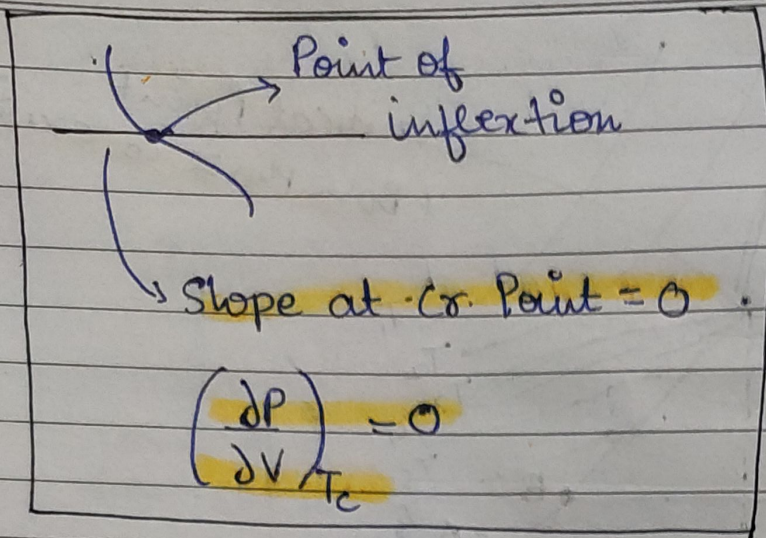 Point of
inflextion
Slope at Cr. Point = 0
(∂P/∂V)Tc = 0